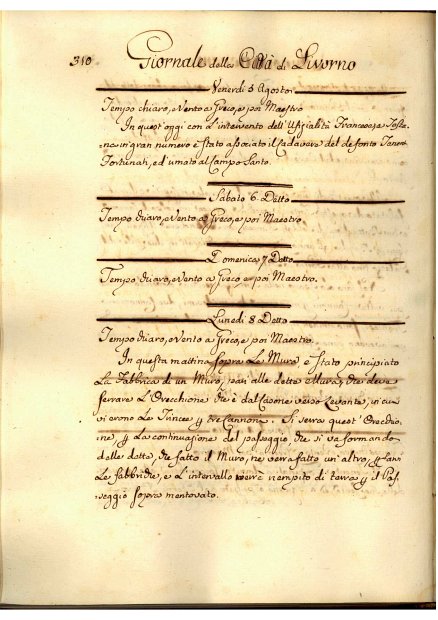 310 Giornale della Città di Livorno
Venerdi 5 Agosto
Tempo chiaro, e Vento a Greco, e poi Maestro
In quest'oggi con l'intervento dell'Ufizialità Francese, e Tosca-
na in gran numero è stato associato il Cadavere del defonto Tenen.
Fortunati, ed umato al Campo Santo.
Sabato 6 Detto
Tempo chiaro, e Vento a Greco, e poi Maestro
Domenica 7 Detto
Tempo chiaro, e Vento a Greco e poi Maestro.
Lunedi 8 Detto
Tempo chiaro, e Vento a Greco, e poi Maestro.
In questa mattina sopra Le Mura è stato principiato
La Fabbrica di un Muro, pari alle dette Mura, che deve
serrare L'Orecchione che è dal Casone verso Levante, in cui
vi erono Le Trince e tre Cannone. Si serra quest'Orecchio-
ne, p La continuazione del passeggio, che si va formando
dalle dette, che fatto il Muro, ne verrà fatto un'altro,
Le fabbriche, e L'intervallo verrà riempito di terra p il Pas-
seggio sopra mentovato.